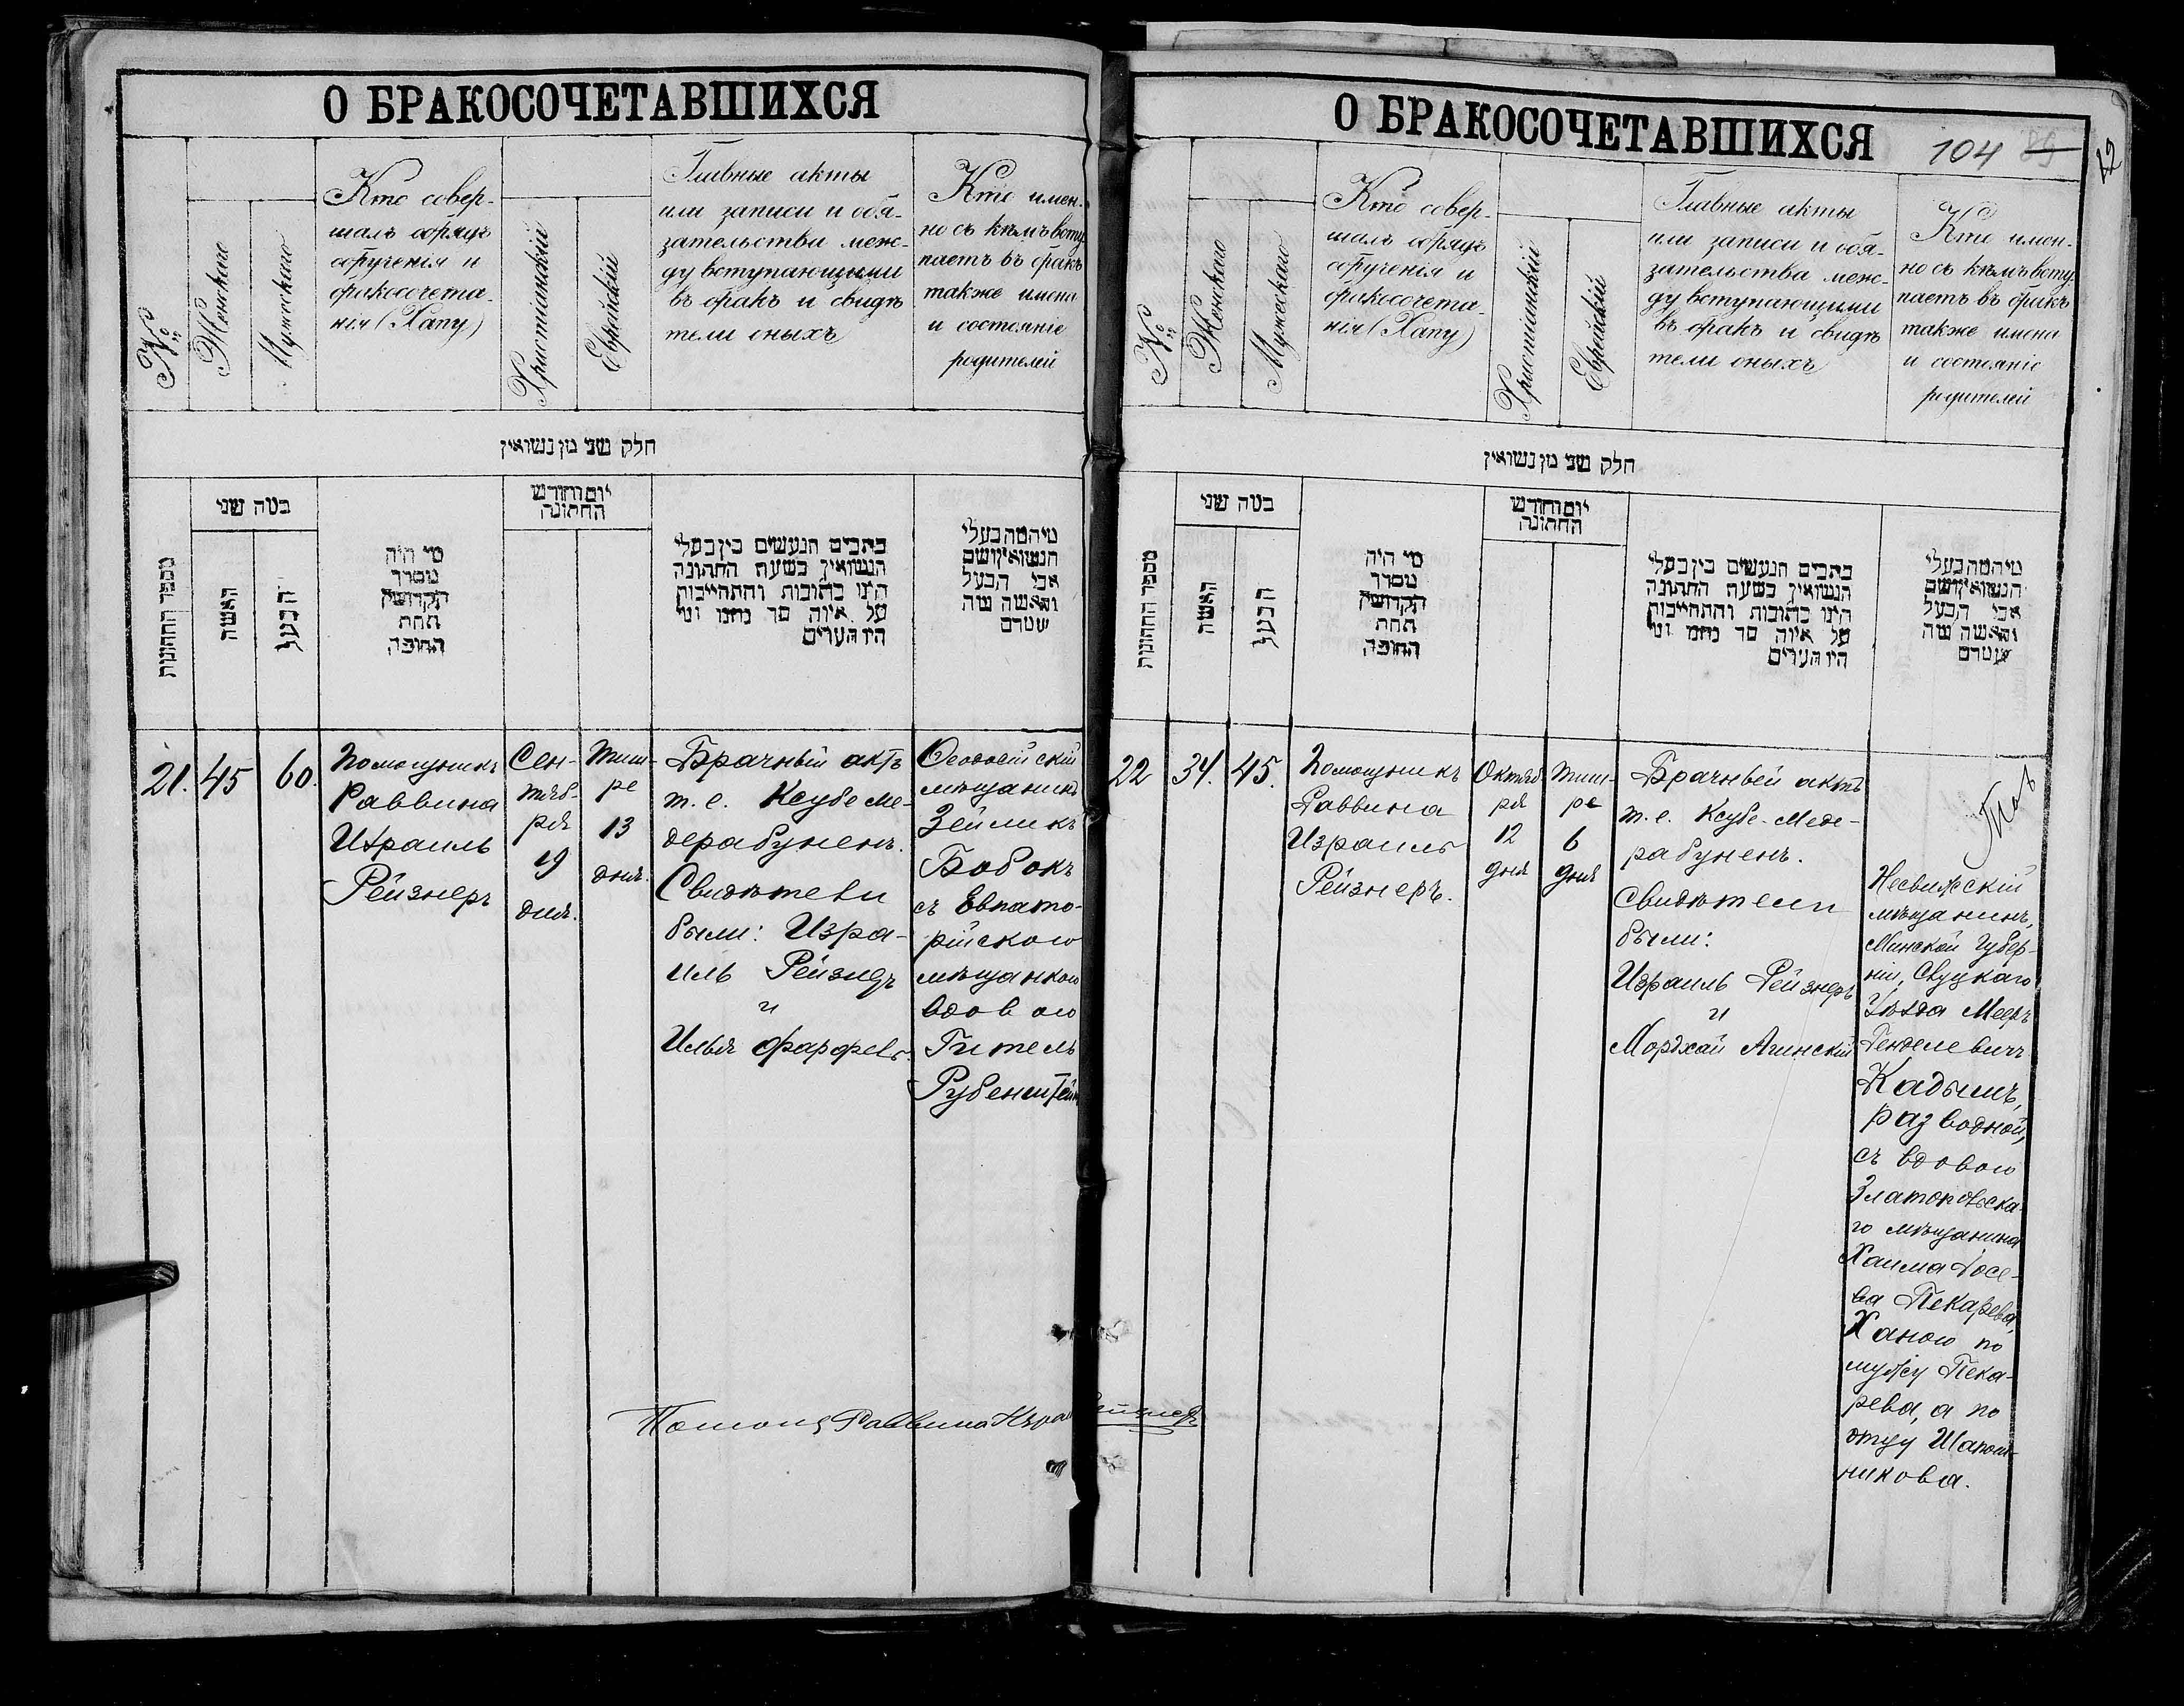 О БРАКОСОЧЕТАВШИХСЯ
№
Женскаго
Мужескаго
Кто совер-
шалъ обрядъ
обрученія и
бракосочета-
нія (Хапу)
Христіанскій
Еврейскій
Главные акты
или записи и обя-
зательства меж-
ду вступающими
въ бракъ и свидѣ
тели оныхъ
Кто имен-
но съ кѣмъ всту-
паетъ въ бракъ
также имена
и состояніе
родителей
חלק שני מן נשואין
מספר החתונות
במה שני
האשה
הבעל
מי היה
מסדר
הקדושין
תחת
החופה
יום וחודש
החתונה
כתבים הנעשים בין בעלי
הנשואין בשעת החתונה
הינו כתובות והתחייבות
על איזה סך נתנו ומי
היו העדים
מי המה בעלי
הנשואין ושם
אבי הבעל
והאשה מה
שטרם
21.
45
60.
Помощникъ
Раввина
Израиль
Рейзнеръ
Сен-
тяб-
ря
19
дня.
Тиш-
ре
13
дня.
Брачный актъ
т. е. Ксубе Ме-
дерабуненъ.
Свидѣтели
были: Изра-
иль Рейзнеръ
и
Илья Фарфель.
Ѳеодосійскій
мѣщанинъ
Зейликъ
Бобокъ
съ Евпато-
рійскою
мѣщанкою
вдовою
Гитель
Рубенштейнъ
Помощ Раввина
О БРАКОСОЧЕТАВШИХСЯ
104
12
№
Женскаго
Мужескаго
Кто совер-
шалъ обрядъ
обрученія и
бракосочета-
нія (Хапу)
Христіанскій
Еврейскій
Главные акты
или записи и обя-
зательства меж-
ду вступающими
въ бракъ и свидѣ
тели оныхъ
Кто имен-
но съ кѣмъ всту-
паетъ въ бракъ
также имена
и состояніе
родителей
חלק שני מן נשואין
מספר החתונות
במה שני
האשה
הבעל
מי היה
מסדר
הקדושין
תחת
החופה
יום וחודש
החתונה
כתבים הנעשים בין בעלי
הנשואין בשעת החתונה
הינו כתובות והתחייבות
על איזה סך נתנו ומי
היו העדים
מי המה בעלי
הנשואין ושם
אבי הבעל
והאשה מה
שטרם
22
34.
45.
Помощникъ
Раввина
Израиль
Рейзнеръ.
Октяб-
ря
12
дня
Тиш-
ре
6
дня
Брачный актъ
т. е. Ксубе-Меде-
рабуненъ.
Свидѣтели
были:
Израиль Рейзнеръ
и
Мордхай Агинскій
Несвижскій
мѣщанинъ,
Минской Губер-
ніи, Слуцкаго
Уѣзда Мееръ
Генделевичъ
Кадышъ,
разводной,
съ вдовою
Златопольска-
го мѣщанина
Хаима Іосе-
ва Пекарева,
Ханою по
мужу Пека-
рева, а по
отцу Шапош-
никова.